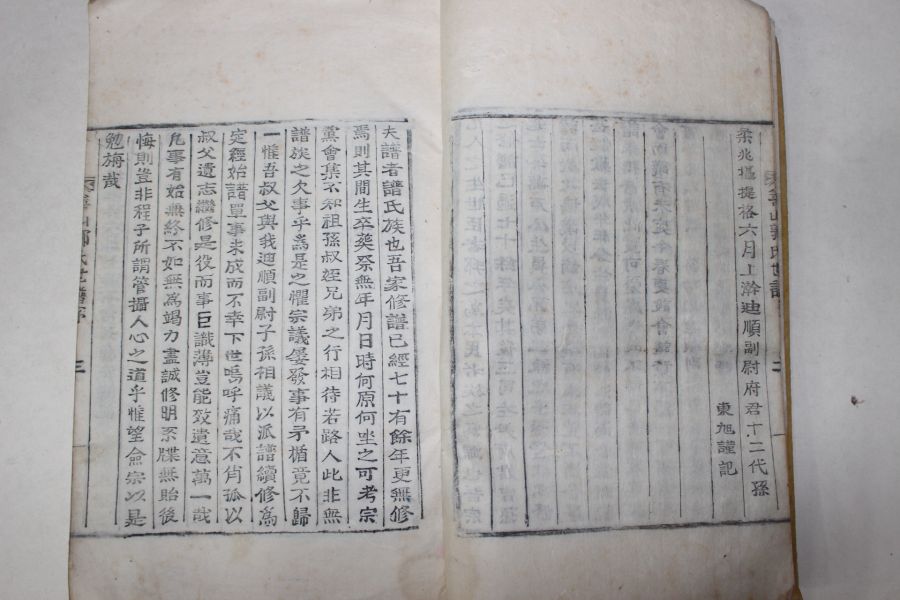 善山郭氏世譜
二
柔兆攝提格六月上澣迪順副尉府君十二代孫
東旭謹記
夫譜者譜氏族也吾家修譜已經七十有餘年更無修
焉則其間生卒葬祭無年月日時何原何坐之可考宗
黨會集不知祖孫叔姪兄弟之行相待若路人此非無
譜族之欠事乎爲是之懼宗議屢發事有矛楯竟不歸
一惟吾叔父與我迪順副尉子孫相議以派譜續修爲
定經始譜單事未成而不幸下世嗚呼痛哉不肖孤以
叔父遺志繼修是役而事巨識薄豈能效遺意萬一哉
凡事有始無終不如無爲竭力盡誠修明系牒無貽後
悔則豈非程子所謂管攝人心之道乎惟望僉宗以是
勉旃哉
三